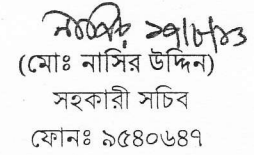 ২৭/৮/১৩
(মোঃ নাসির উদ্দিন)
সহকারী সচিব
ফোনঃ ৯৫৪০৬৪৭